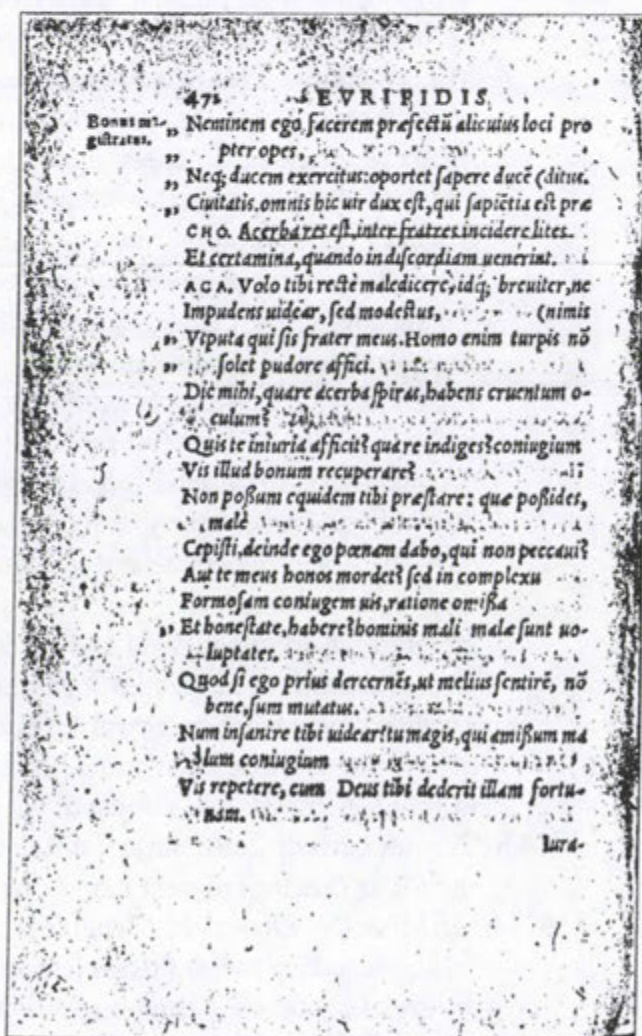 472 EVRIPIDIS
Bonus ma-
gistratus.
„ Neminem ego facerem præfectũ alicuius loci pro
„ pter opes,
„ Neq; ducem exercitus: oportet sapere ducẽ (ditus.
„ Ciuitatis. omnis hic uir dux est, qui sapiẽtia est præ
CHO. Acerba res est, inter fratres incidere lites
Et certamina, quando in discordiam uenerint.
AGA. Volo tibi rectè maledicere, idq; breuiter, ne
Impudens uidear, sed modestus, (nimis
„ Vtputa qui sis frater meus. Homo enim turpis nõ
„ solet pudore affici.
Dic mihi, quare acerba spiras, habens cruentum o-
culum?
Quis te iniuria afficit? qua re indiges? coniugium
Vis illud bonum recuperare?
Non poßum equidem tibi præstare: quæ poßides,
malè
Cepisti, deinde ego pœnam dabo, qui non peccaui?
Aut te meus honos mordet? sed in complexu
Formosam coniugem uis, ratione omißa
„ Et honestate, habere? hominis mali malæ sunt uo-
luptates.
Quod si ego prius dercernẽs, ut melius sentirẽ, nõ
bene, sum mutatus.
Num insanire tibi uidear? tu magis, qui amißum ma
lum coniugium
Vis repetere, cum Deus tibi dederit illam fortu-
nam.
Iura-